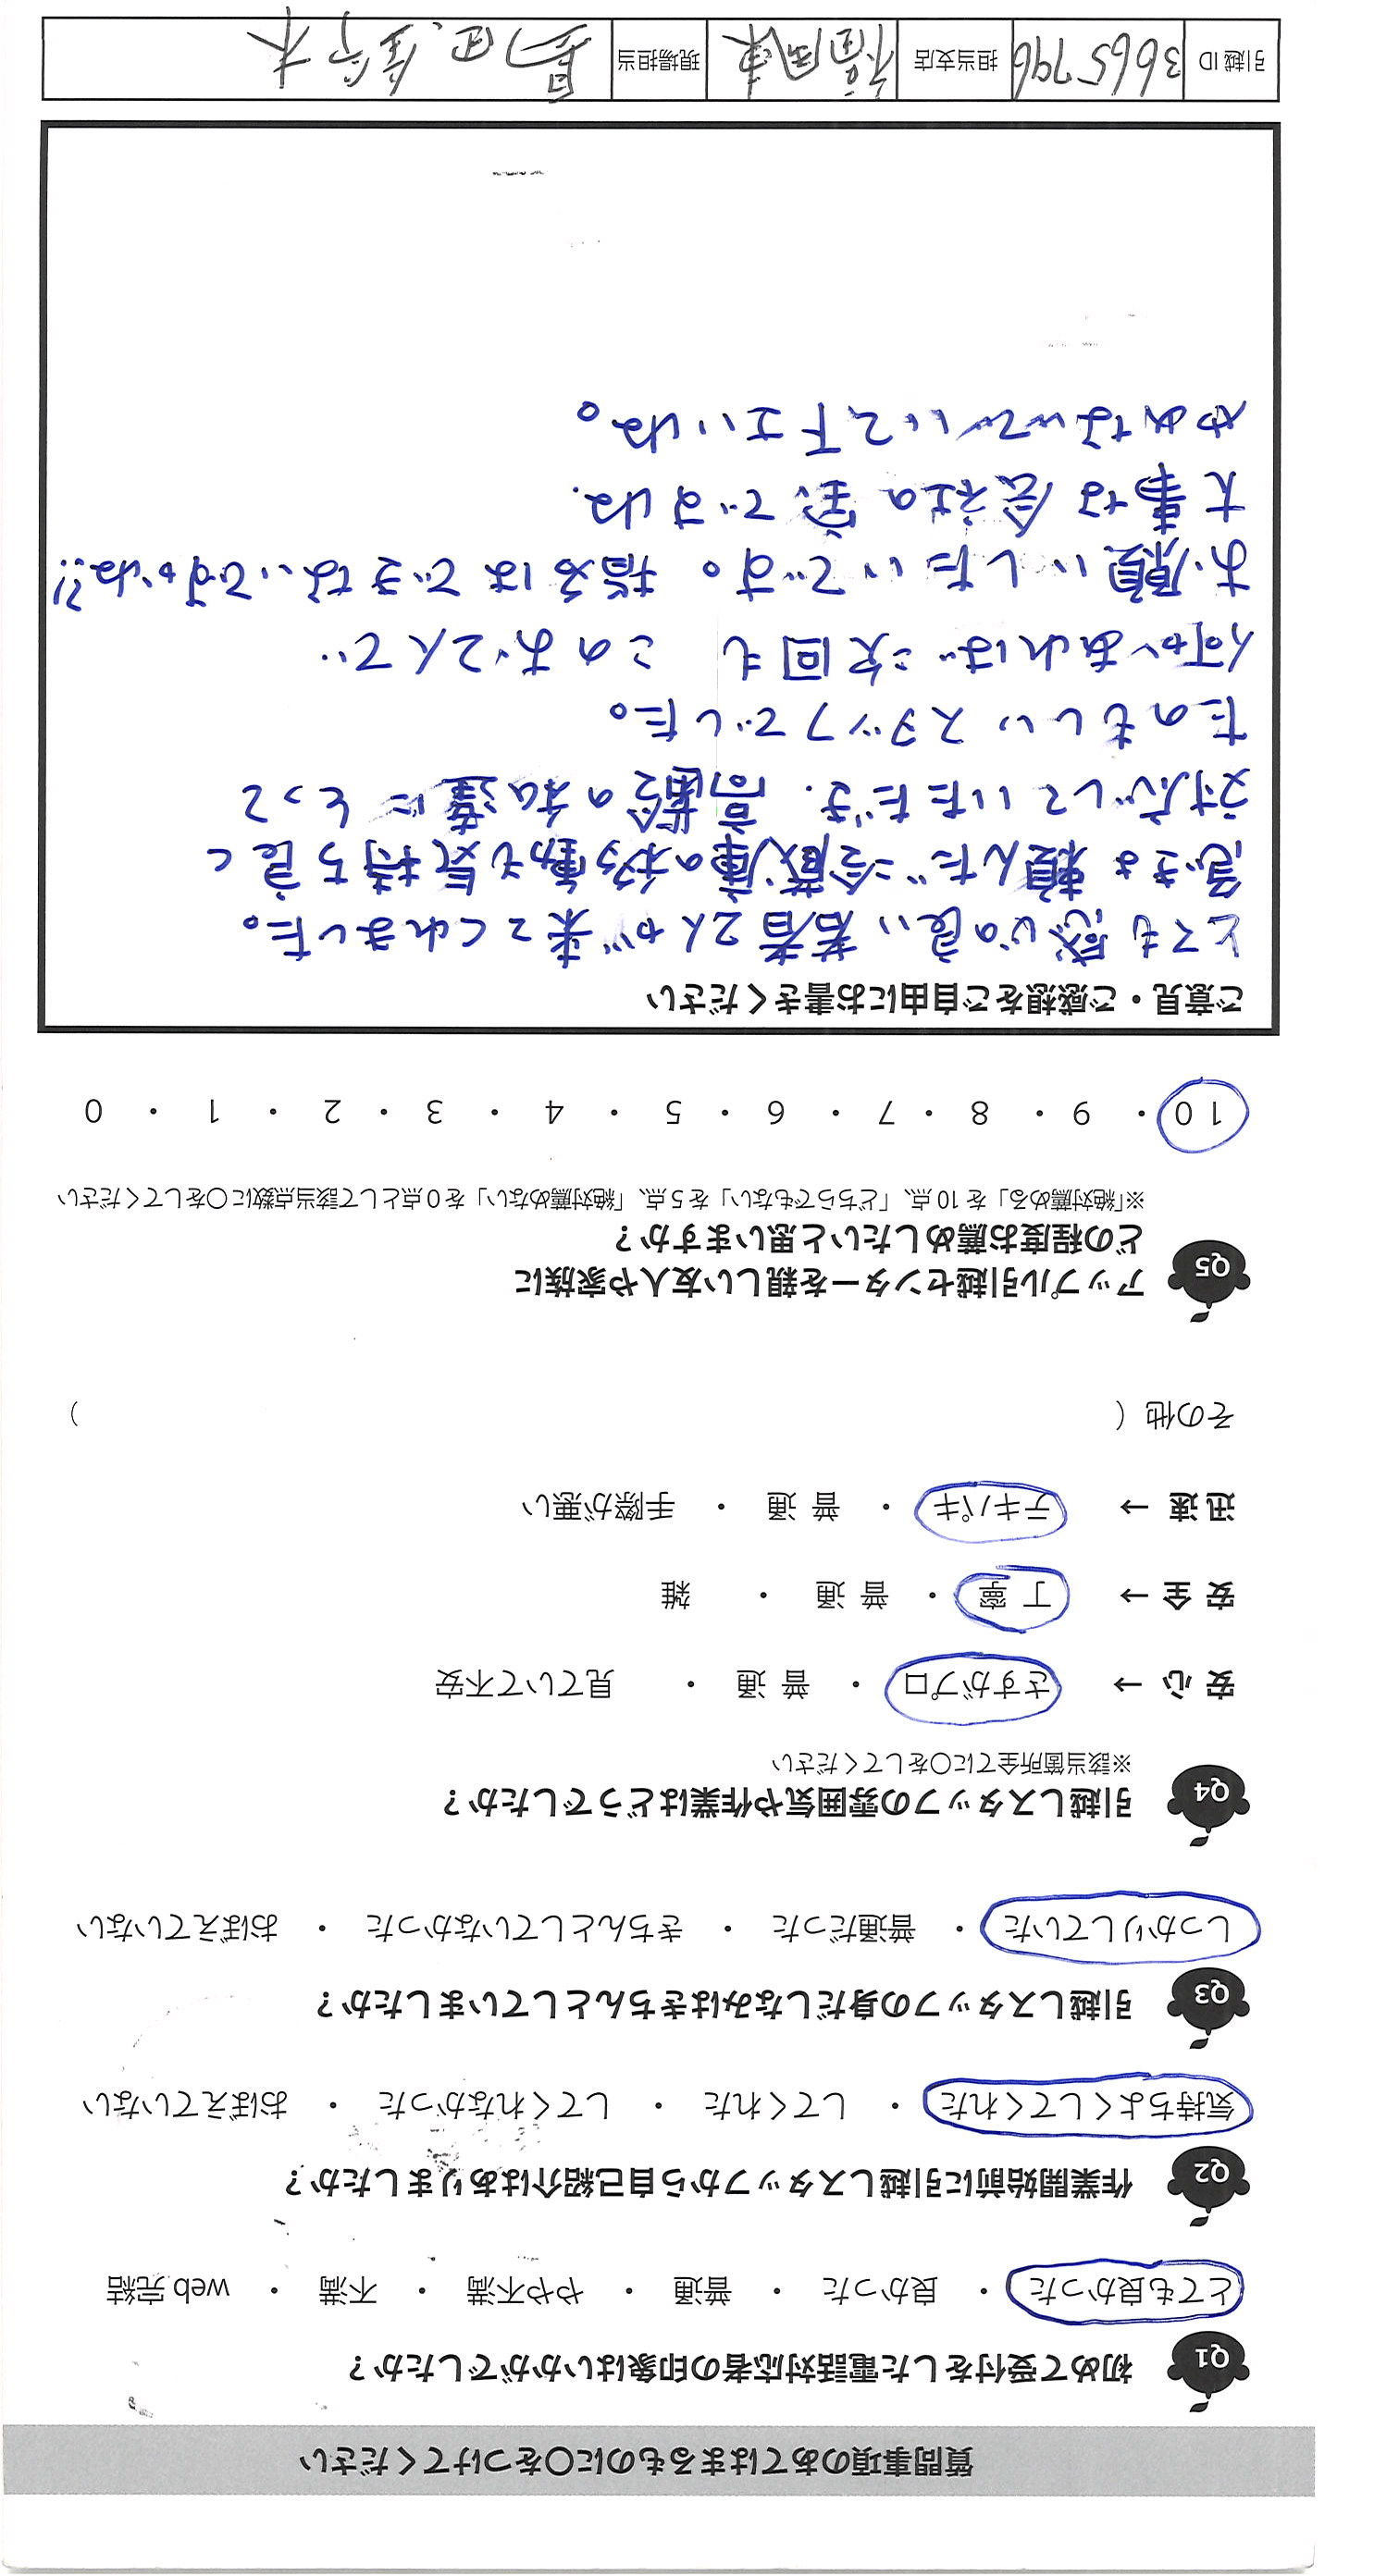 質問事項のあてはまるものに〇をつけてください
Q1 初めて受付をした電話対応者の印象はいかがでしたか？
とても良かった ・ 良かった ・ 普通 ・ やや不満 ・ 不満 ・ web 完結
Q2 作業開始前に引越しスタッフから自己紹介はありましたか？
気持ちよくしてくれた ・ してくれた ・ してくれなかった ・ おぼえていない
Q3 引越しスタッフの身だしなみはきちんとしていましたか？
しっかりしていた ・ 普通だった ・ きちんとしていなかった ・ おぼえていない
Q4 引越しスタッフの雰囲気や作業はどうでしたか？
※該当箇所全てに〇をしてください
安 心 → さすがプロ ・ 普 通 ・ 見ていて不安
安 全 → 丁 寧 ・ 普 通 ・ 雑
迅 速 → テキパキ ・ 普 通 ・ 手際が悪い
その他（ ）
Q5 アップル引越センターを親しい友人や家族に
どの程度お薦めしたいと思いますか？
※「絶対薦める」を 10 点、「どちらでもない」を 5 点、「絶対薦めない」を 0 点として該当点数に〇をしてください
10 ・ 9 ・ 8 ・ 7 ・ 6 ・ 5 ・ 4 ・ 3 ・ 2 ・ 1 ・ 0
ご意見・ご感想をご自由にお書きください
とても感じの良い若者2人が来てくれました。
急きょ頼んだ冷蔵庫の移動も気持ち良く
対応していただき、高齢の私達にとって
たのもしいスタッフでした。
何かあれば次回も このお2人で
お願いしたいです。指名はできないですかね!?
大事な会社の宝ですね.
やめないでいて下さいね。
引越 ID 3665796 担当支店 福岡東 現場担当 島田、佐々木